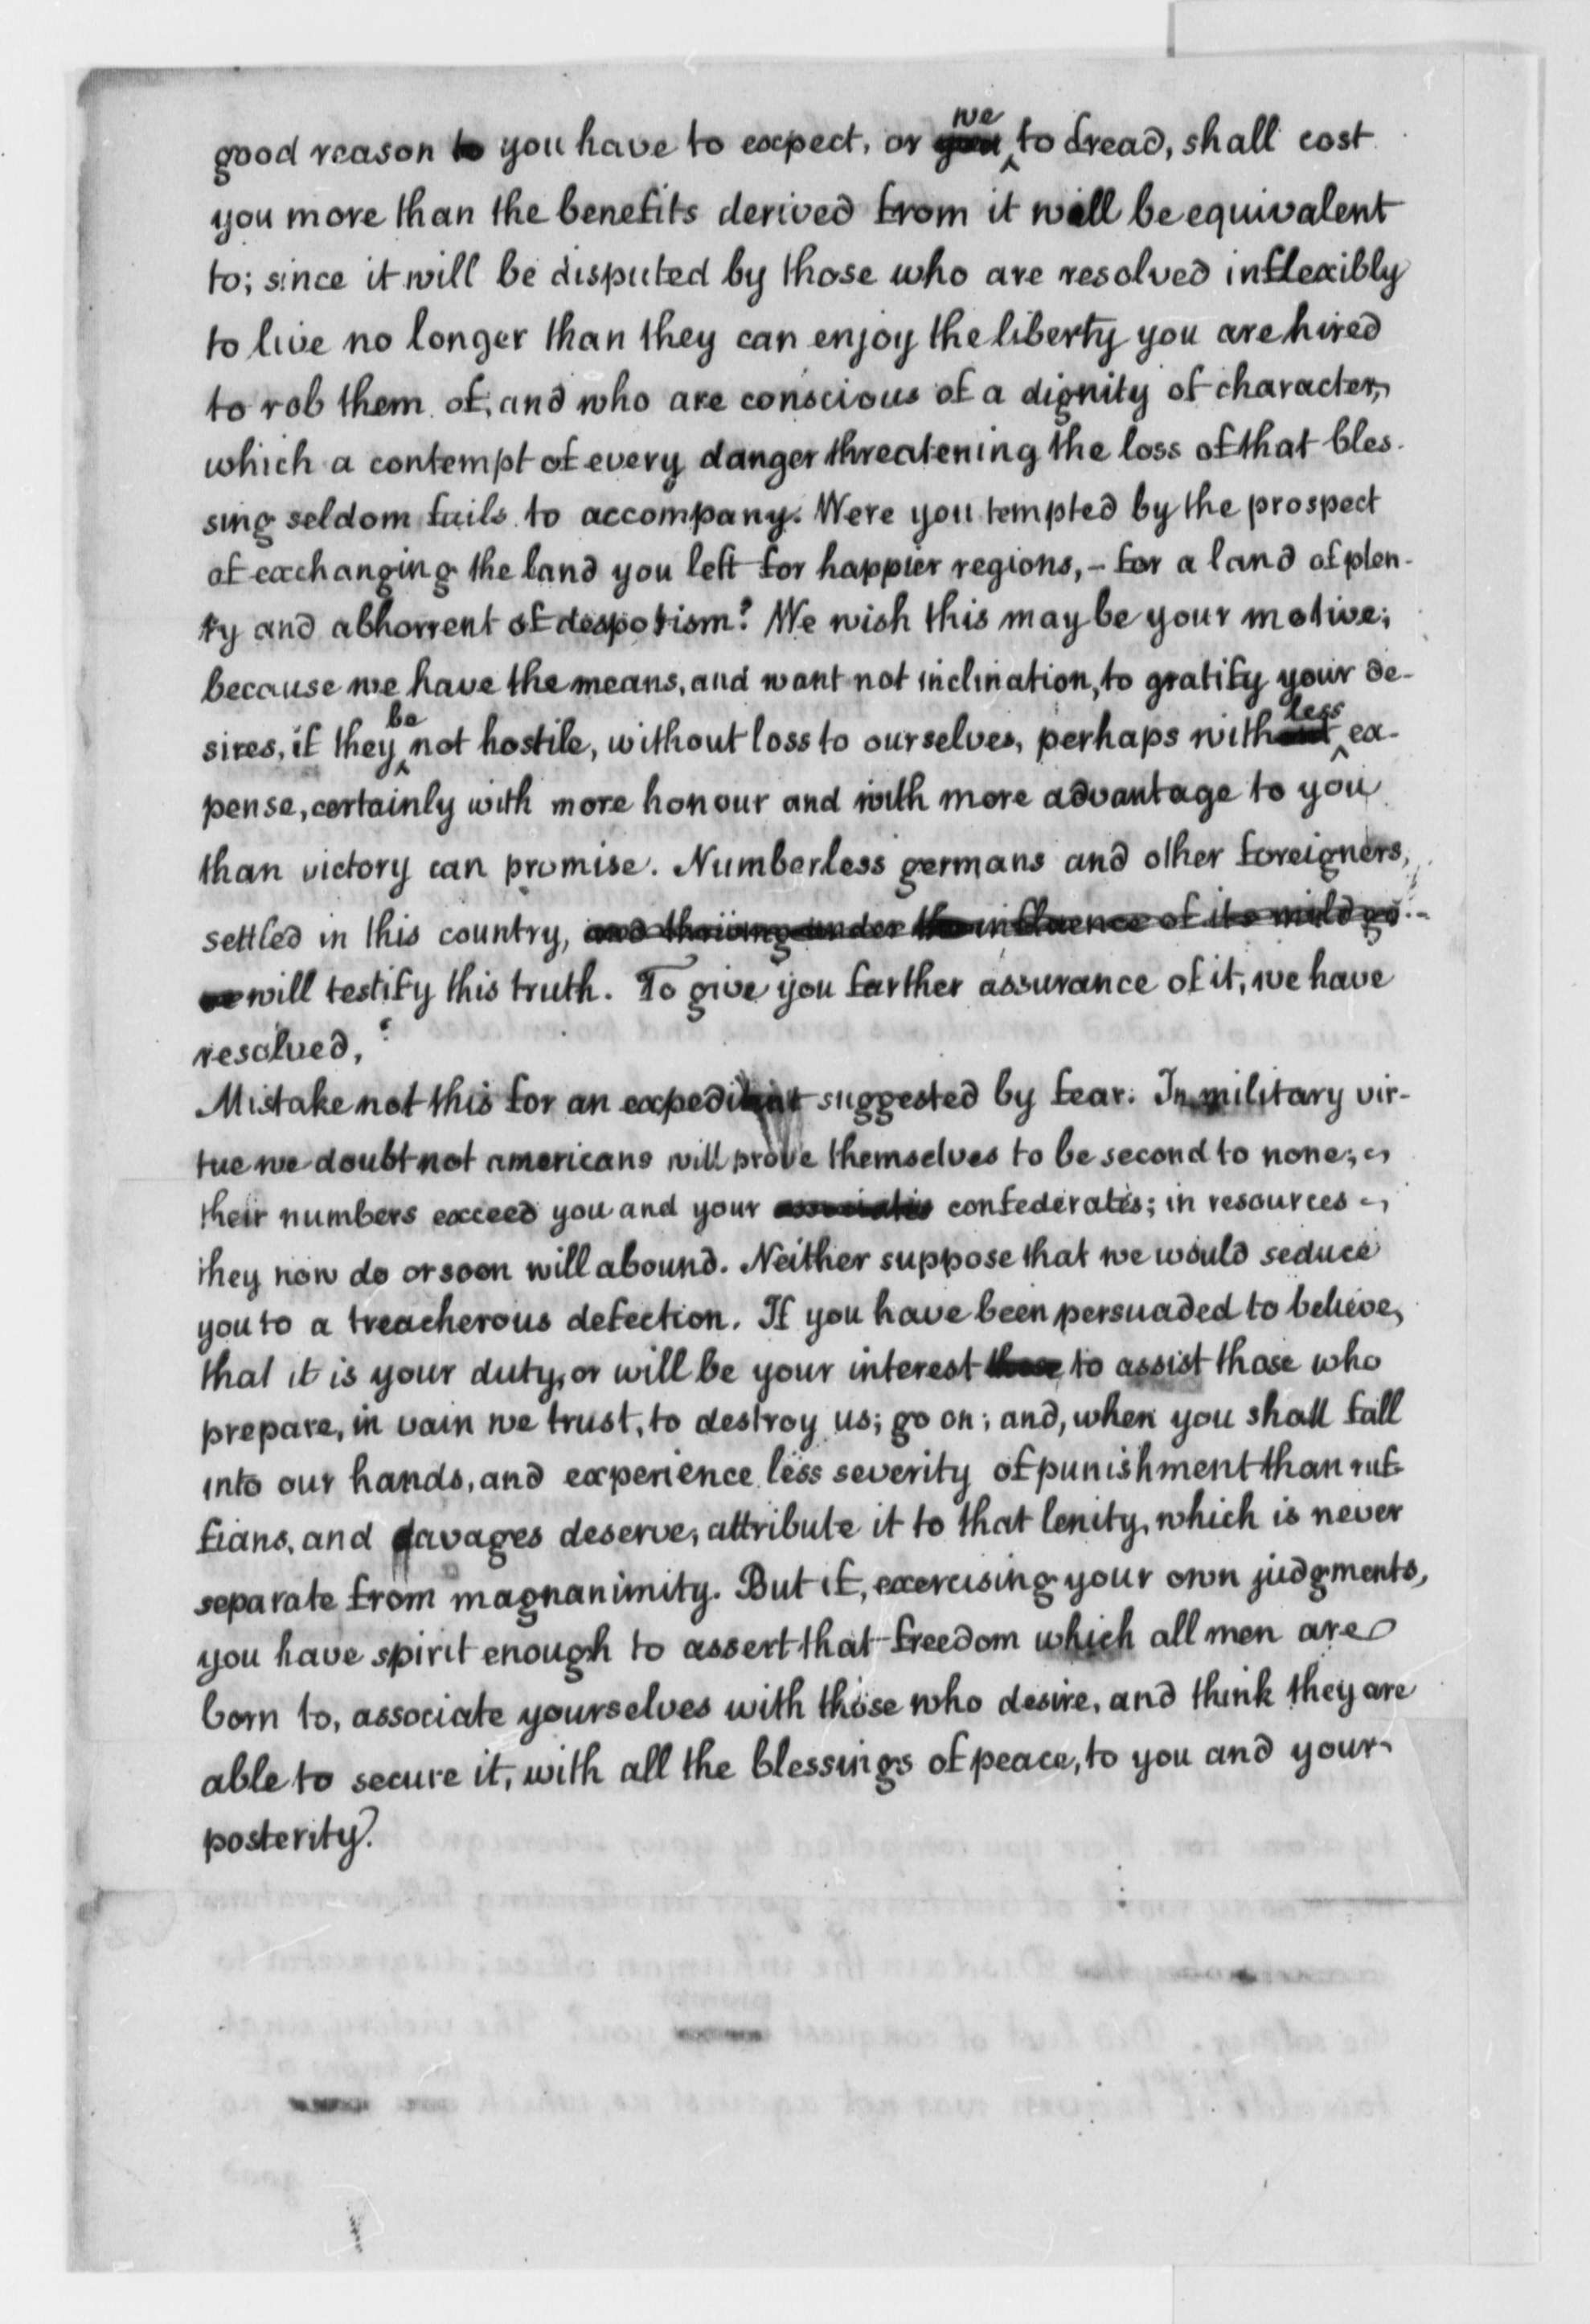 good reason to you have to expect, or you we to dread, shall cost
you more than the benefits derived from it will be equivalent
to; since it will be disputed by those who are resolved inflexibly
to live no longer than they can enjoy the liberty you are hired
to rob them of, and who are conscious of a dignity of character,
which a contempt of every danger threatening the loss of that bles-
sing seldom fails to accompany. Were you tempted by the prospect
of exchanging the land you left for happier regions, - for a land of plen-
ty and abhorrent of despotism? We wish this may be your motive;
because we have the means, and want not inclination, to gratify your de-
sires, if they be not hostile, without loss to ourselves, perhaps with less ex-
pense, certainly with more honour and with more advantage to you
than victory can promise. Numberless germans and other foreigners,
settled in this country, and thriving under the influence of its mild go-
ve will testify this truth. To give you farther assurance of it, we have
resolved,
Mistake not this for an expedient suggested by fear. In military vir-
tue we doubt not americans will prove themselves to be second to none;
their numbers exceed you and your associates confederates; in resources
they now do or soon will abound. Neither suppose that we would seduce
you to a treacherous defection. If you have been persuaded to believe,
that it is your duty, or will be your interest those to assist those who
prepare, in vain we trust, to destroy us; go on; and, when you shall fall
into our hands, and experience less severity of punishment than ruf-
fians, and savages deserve, attribute it to that lenity, which is never
separate from magnanimity. But if, exercising your own judgments,
you have spirit enough to assert that freedom which all men are
born to, associate yourselves with those who desire, and think they are
able to secure it, with all the blessings of peace, to you and your
posterity.